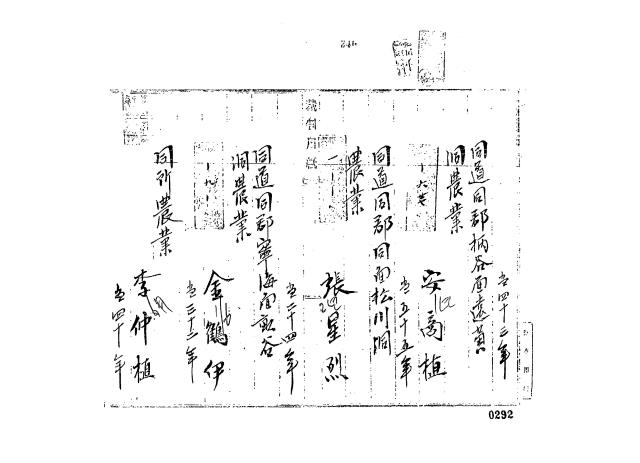 当四十三年
同道同郡柄谷面遠黃
洞農業
安商植
当五十五年
同道同郡同面松川洞
農業
張星烈
当二十四年
同道同郡寧海面畝谷
洞農業
金鶴伊
当三十二年
同所農業
李仲植
当四十年
0292